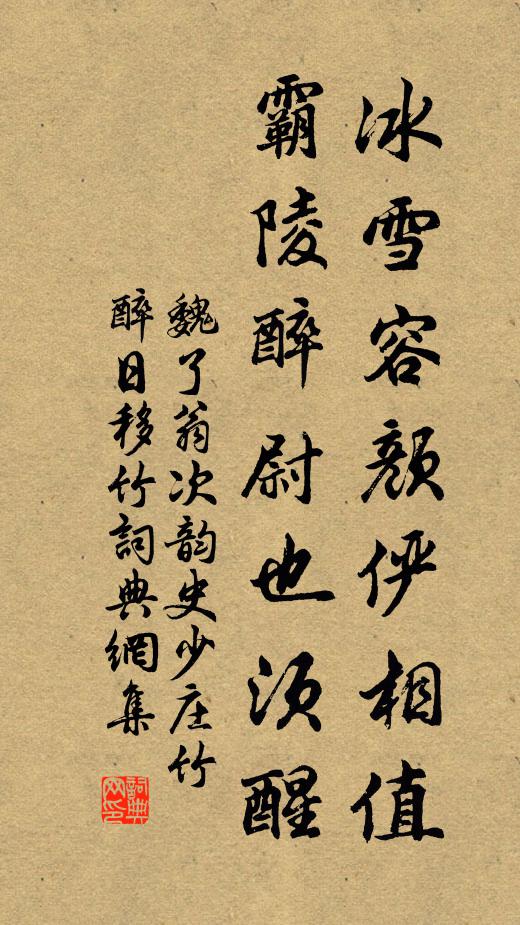 冰雪容颜俨相值
霸陵醉尉也须醒
魏了翁次韵史少庄竹
醉日移竹詞典網集
詞典網印